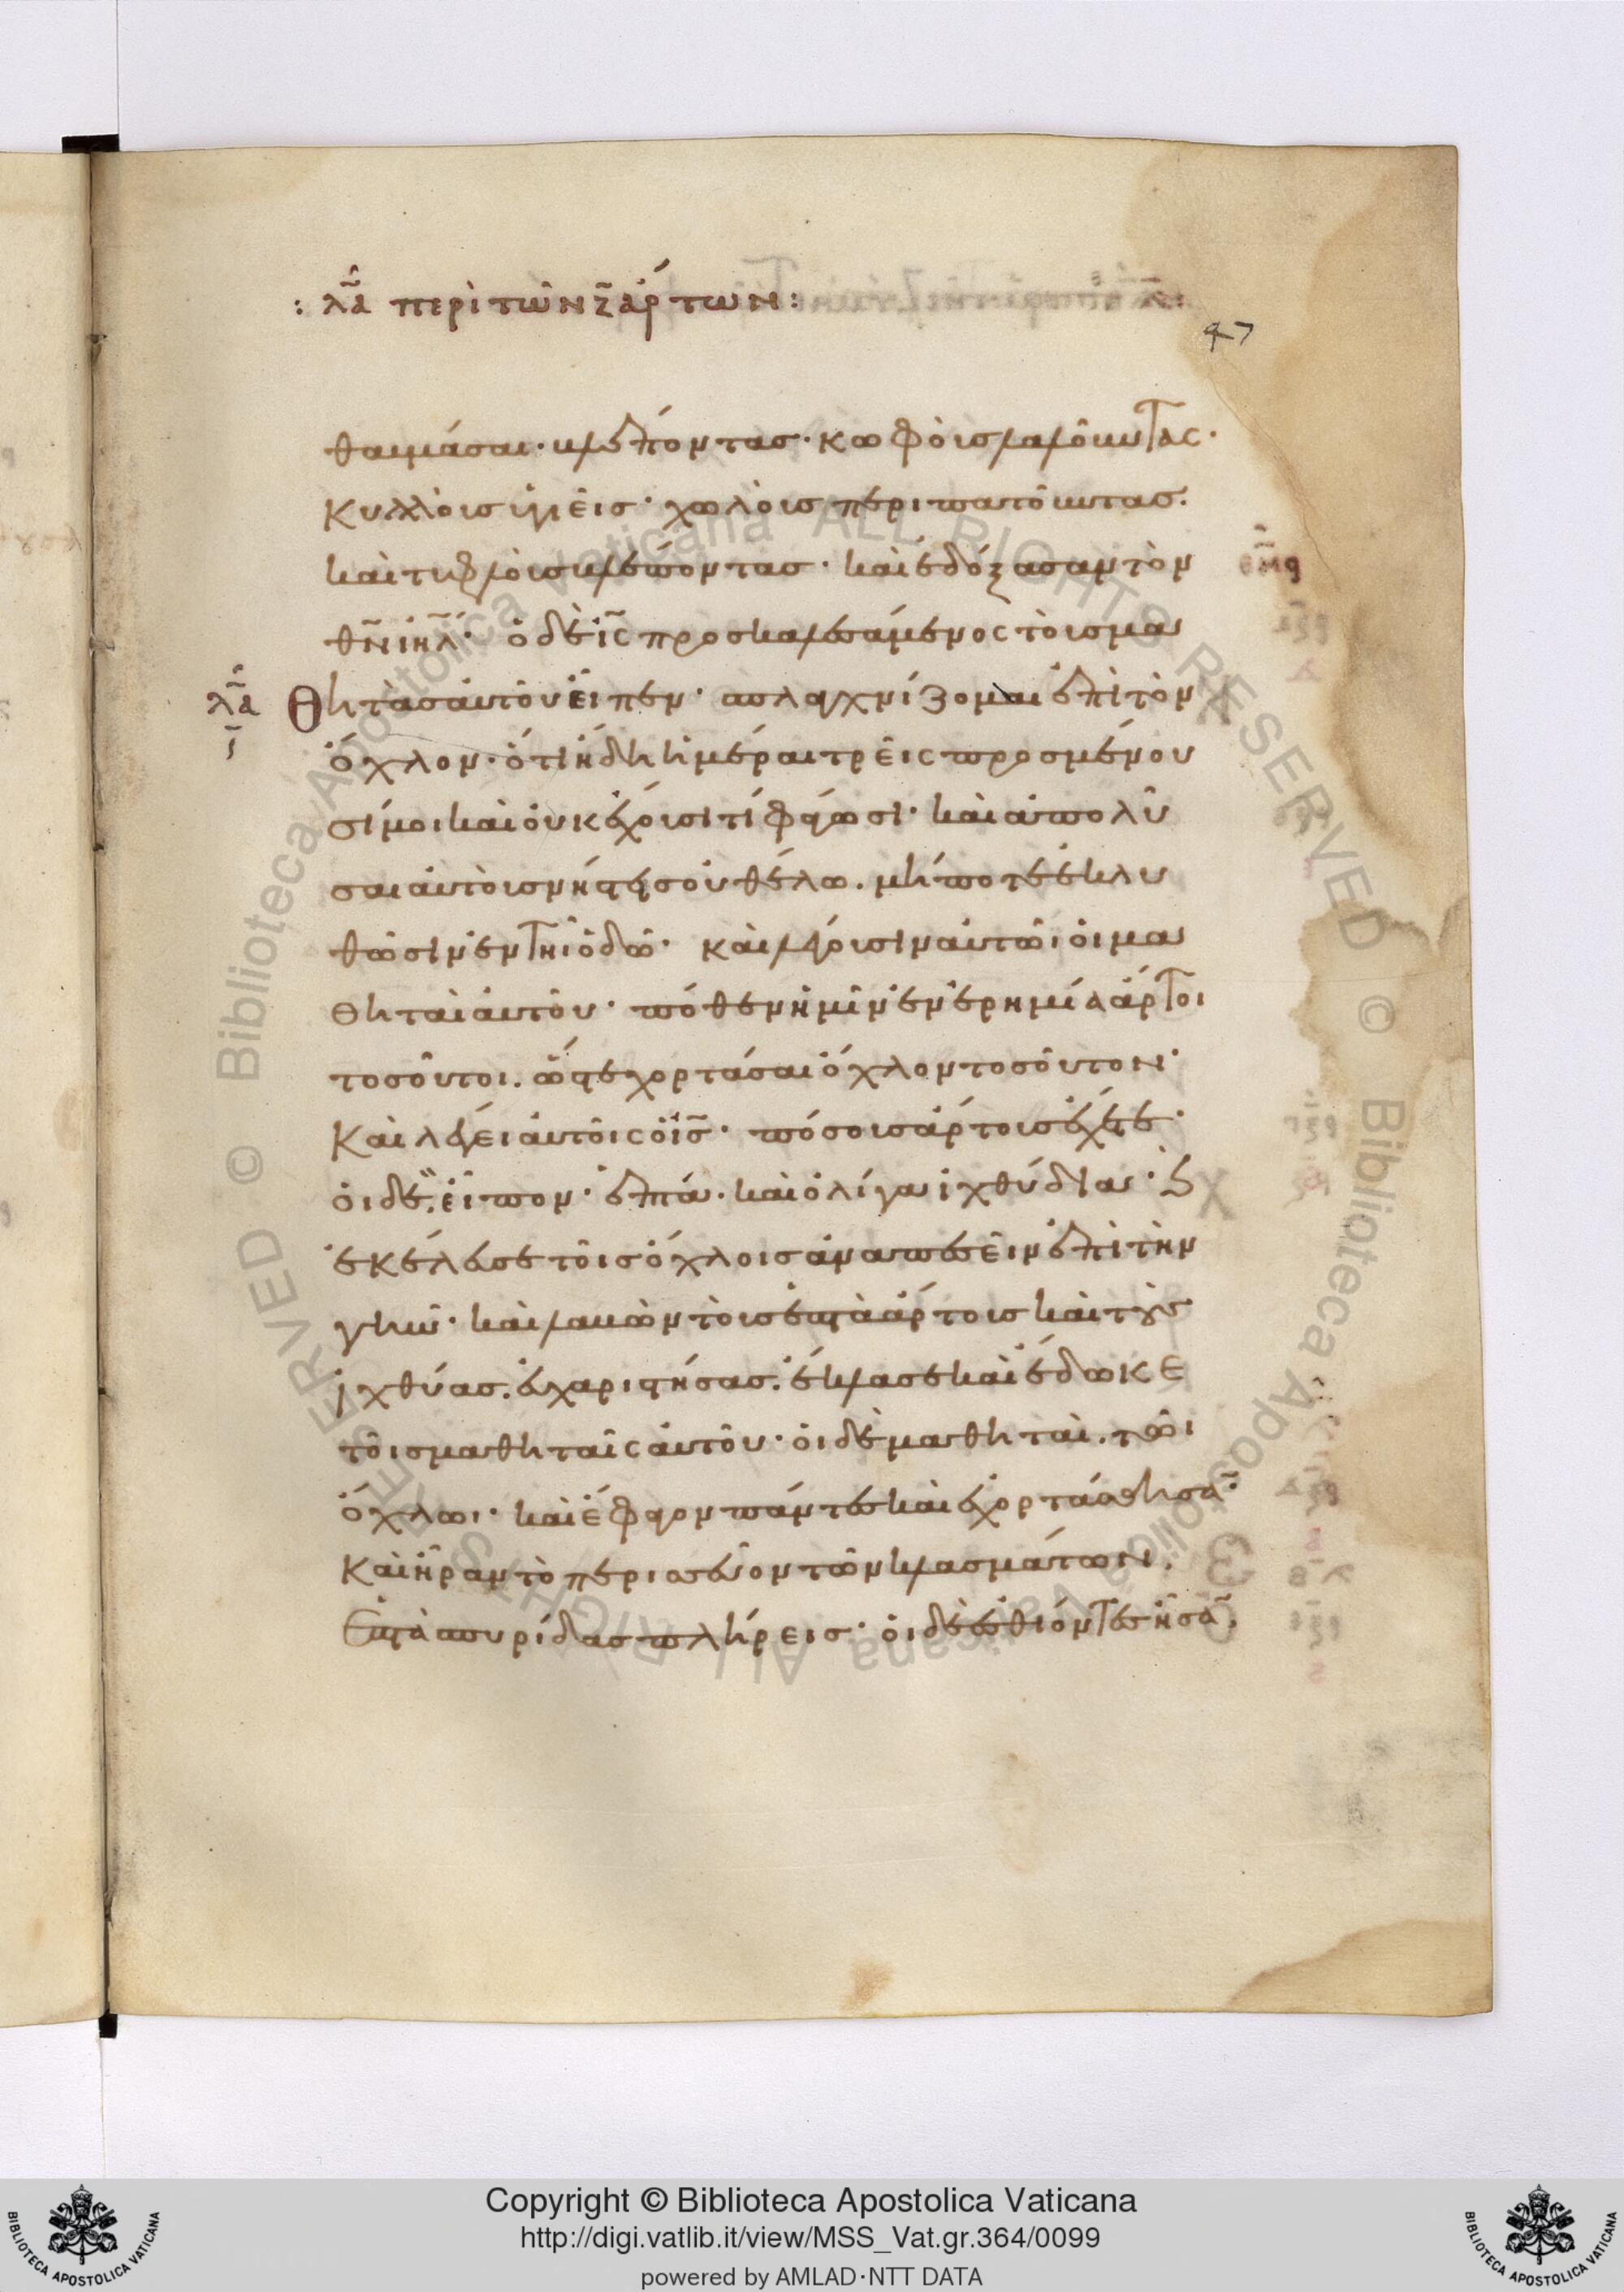 : λα περὶ τῶν ζ ἄρτων :
47
θαυμάσαι· βλέποντας· κωφοὺς λαλοῦντας·
κυλλοὺς ὑγιεῖς· χωλοὺς περιπατοῦντας·
καὶ τυφλοὺς βλέποντας· καὶ ἐδόξασαν τὸν
θν ιηλ· ὁ δὲ ις προσκαλεσάμενος τοὺς μα
λα θητὰς αὐτοῦ εἶπεν· σπλαγχνίζομαι ἐπὶ τὸν
ὄχλον· ὅτι ἤδη ἡμέραι τρεῖς προσμένου
σί μοι καὶ οὐκ ἔχουσι τί φάγωσι· καὶ ἀπολῦ
σαι αὐτοὺς νήστεις οὐ θέλω. μήποτε ἐκλυ
θῶσιν ἐν τῆι ὁδῶ· καὶ λέγουσιν αὐτῶι οἱ μα
θηταὶ αὐτοῦ· πόθεν ἡμῖν ἐν ἐρημία ἄρτοι
τοσοῦτοι. ὥστε χορτάσαι ὄχλον τοσοῦτον·
Καὶ λέγει αὐτοῖς ὁ ις· πόσους ἄρτους ἔχετε·
οἱ δὲ εἶπον· ἐπτά· καὶ ὀλίγα ἰχθύδια· ϗ
ἐκέλευσε τοῖς ὄχλοις ἀναπεσεῖν ἐπὶ τὴν
γῆν· καὶ λαβὼν τοὺς ἐπτὰ ἄρτους καὶ τοὺς
ἰχθύας. εὐχαριστήσας. ἔκλασε καὶ ἔδωκε
τοῖς μαθηταῖς αὐτοῦ· οἱ δὲ μαθηταὶ. τῶι
ὄχλωι· καὶ ἔφαγον πάντες καὶ ἐχορτάσθησα̃·
Καὶ ἦραν τὸ περισσεῦον τῶν κλασμάτων.
ἐπτὰ σπυρίδας πλήρεις· οἱ δὲ ἐσθίοντες ἦσα̃.
Copyright © Biblioteca Apostolica Vaticana
http://digi.vatlib.it/view/MSS_Vat.gr.364/0099
powered by AMLAD·NTT DATA